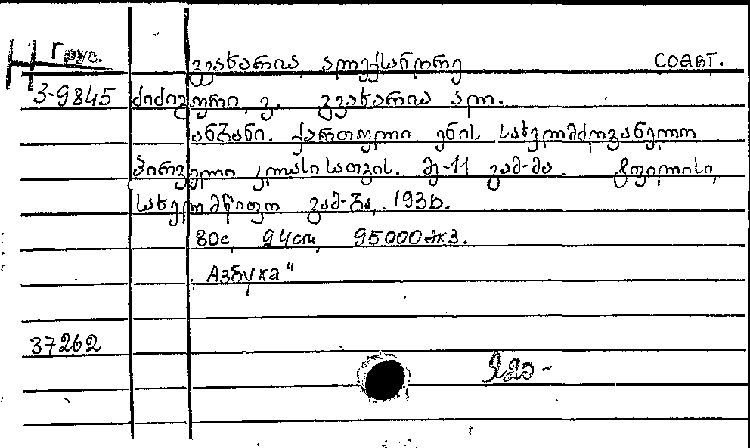 Н Грус.
გვახარია ალექსანდრე соавт.
3-9845 ძიძიგური, ვ. გვახარია ალ.
ანბანი. ქართული ენის სახელმძღვანელო
პირველი კლასისათვის. მე-11 გამ-მა. ტფილისი,
სახელმწიფო გამ-მა, 193
80с, 24см, 95000экз.
Азбука"
37262